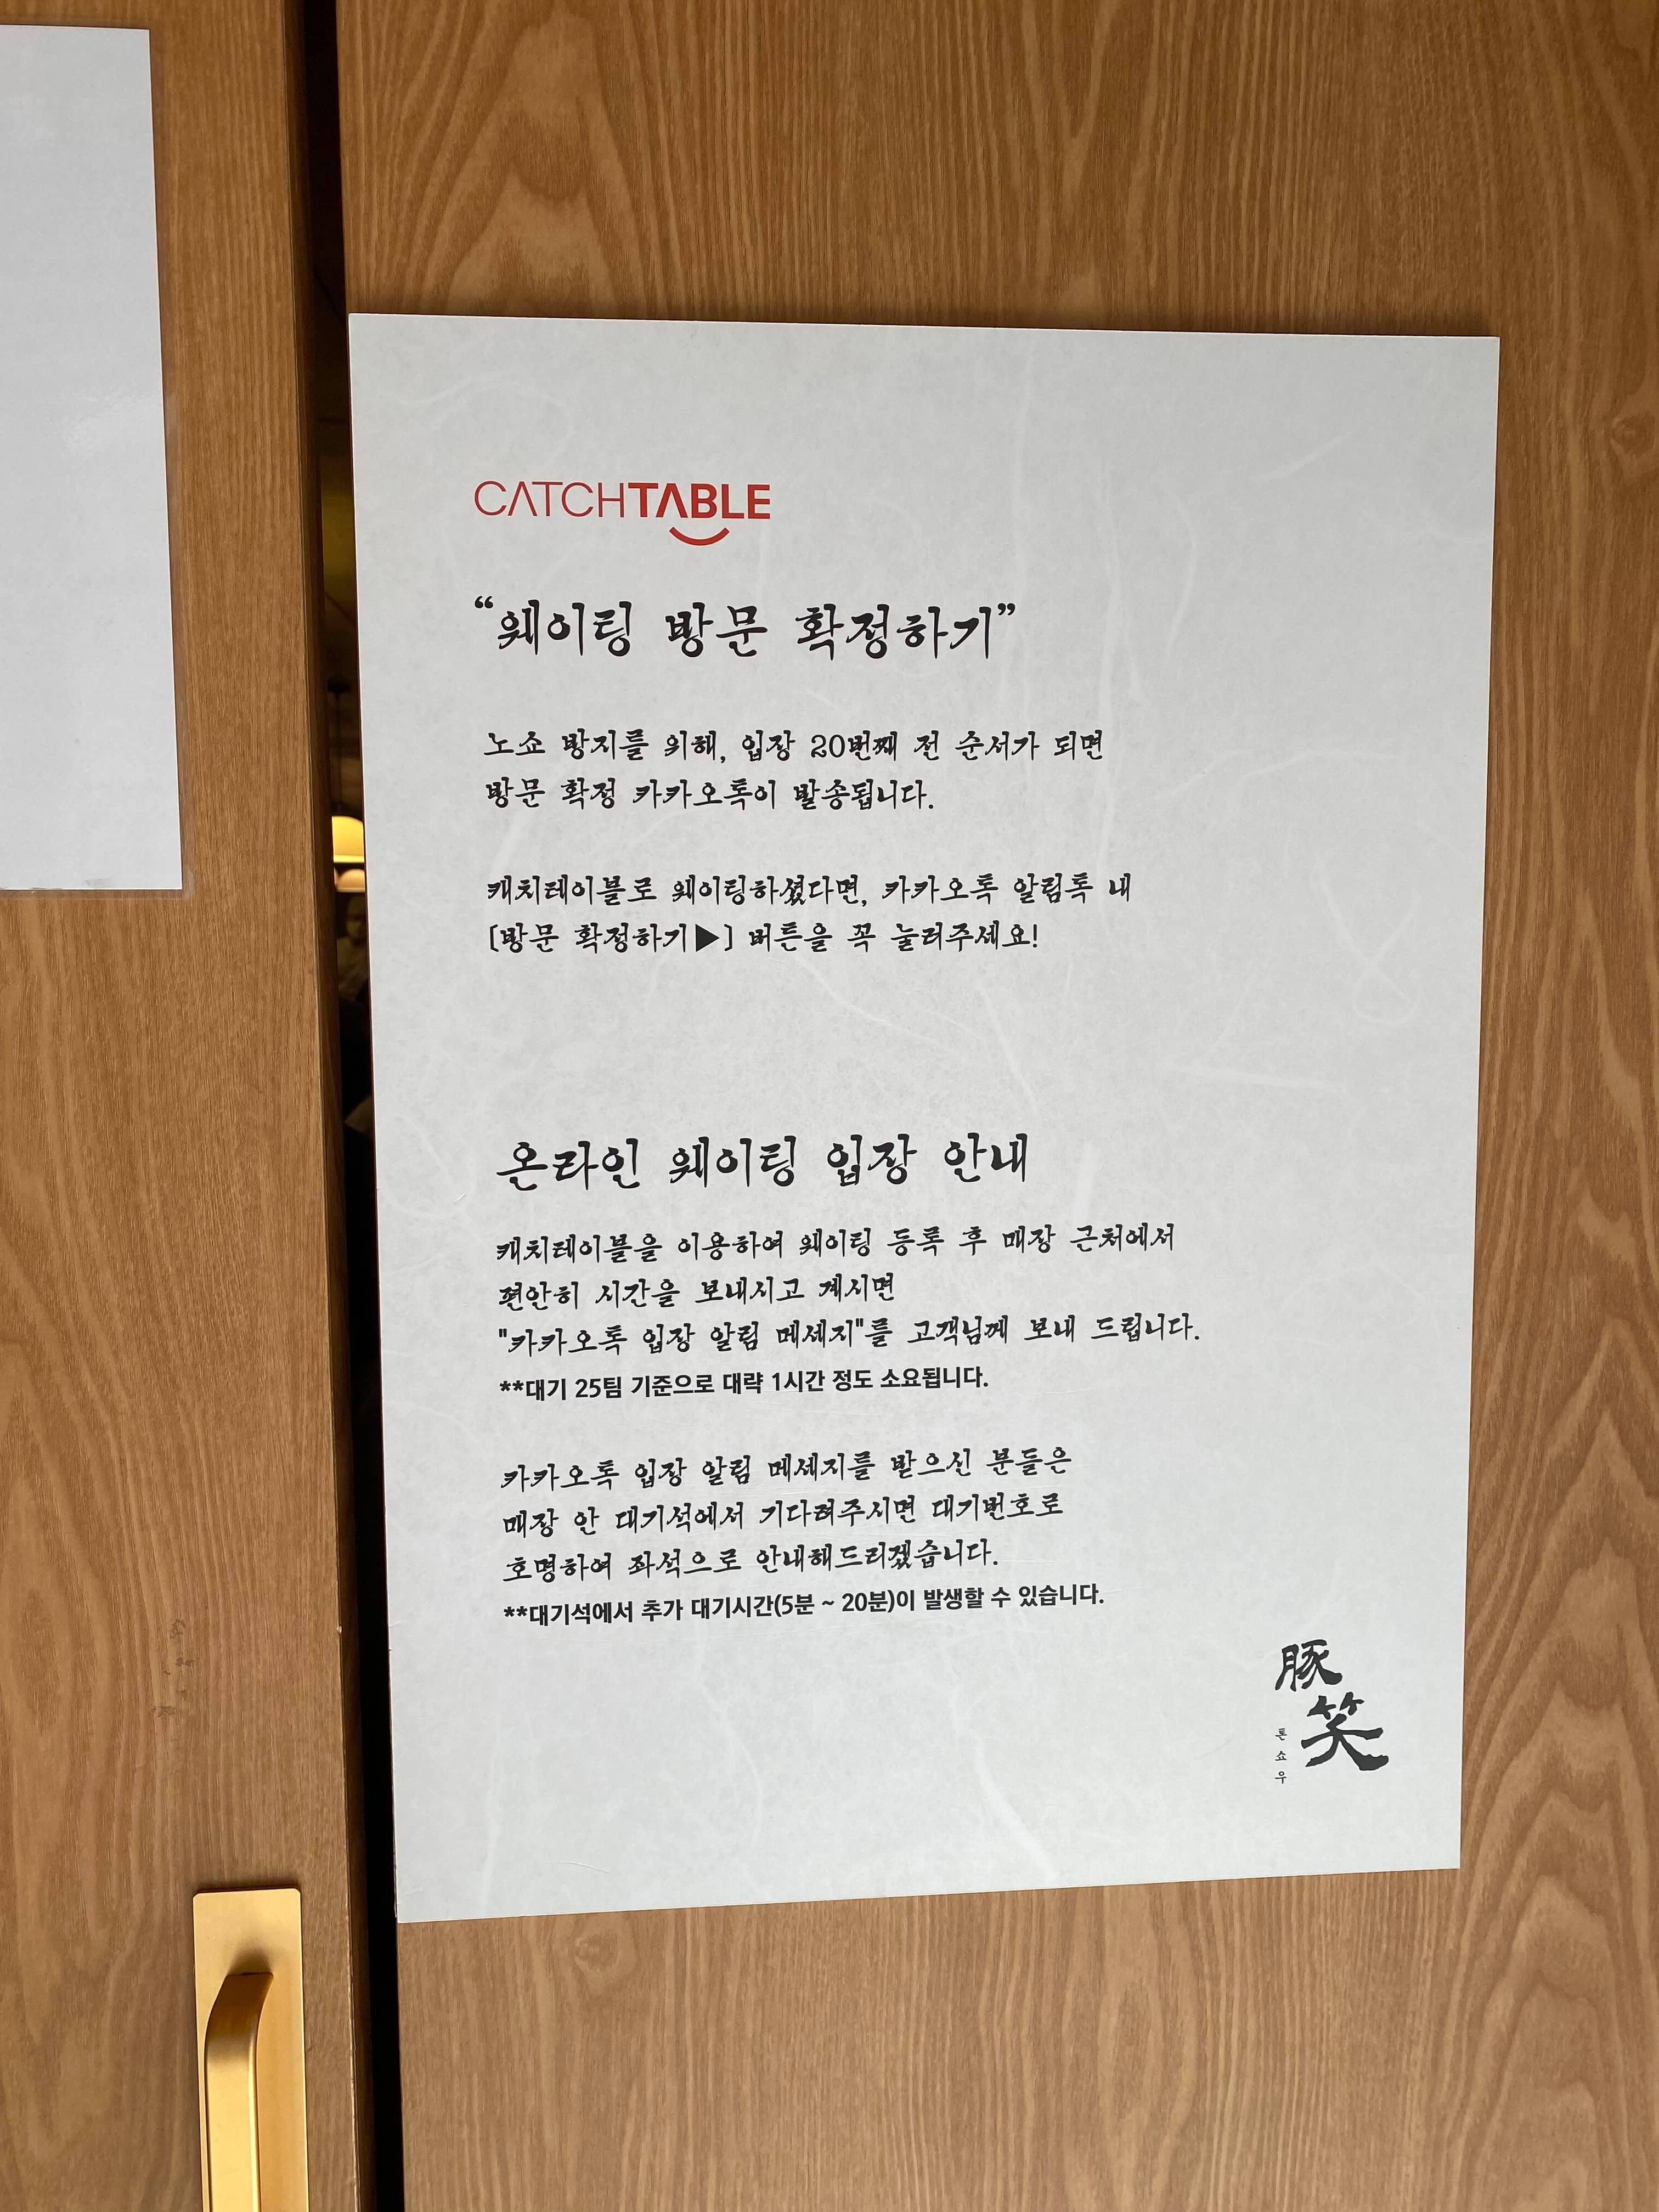 CATCHTABLE
“웨이팅 방문 확정하기”
노쇼 방지를 위해, 입장 20번째 전 순서가 되면
방문 확정 카카오톡이 발송됩니다.
캐치테이블로 웨이팅하셨다면, 카카오톡 알림톡 내
[방문 확정하기▶] 버튼을 꼭 눌러주세요!
온라인 웨이팅 입장 안내
캐치테이블을 이용하여 웨이팅 등록 후 매장 근처에서
편안히 시간을 보내시고 계시면
"카카오톡 입장 알림 메세지"를 고객님께 보내 드립니다.
**대기 25팀 기준으로 대략 1시간 정도 소요됩니다.
카카오톡 입장 알림 메세지를 받으신 분들은
매장 안 대기석에서 기다려주시면 대기번호로
호명하여 좌석으로 안내해드리겠습니다.
**대기석에서 추가 대기시간(5분 ~ 20분)이 발생할 수 있습니다.
豚笑
톤쇼우